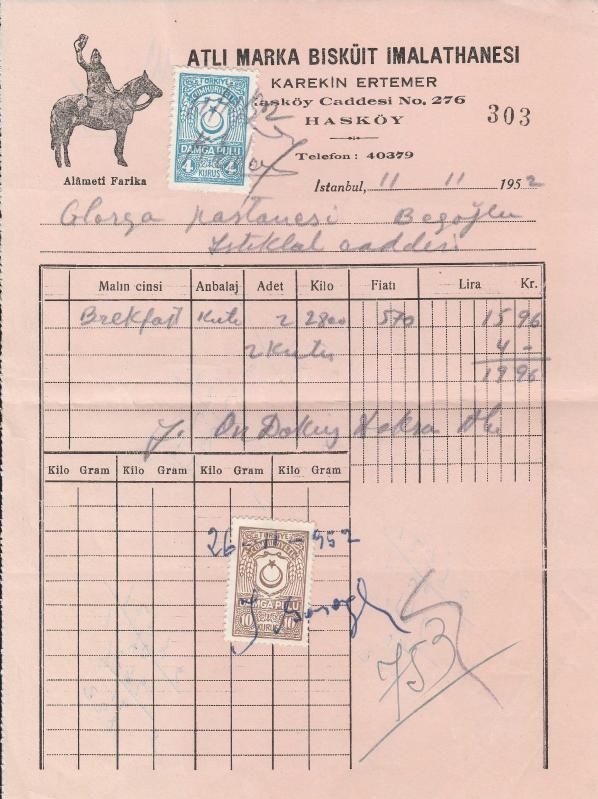 ATLI MARKA BİSKÜİT İMALATHANESİ
KAREKİN ERTEMER
asköy Caddesi No. 276
HASKÖY
303
Telefon : 40379
Alâmeti Farika
TÜRKİYE
CUMHURİYETİ
DAMGA PULU
4 KURUŞ 4
İstanbul, 11 11 1952
Glorya pastanesi Beyoğlu
İstiklal caddesi
Malın cinsi Anbalaj Adet Kilo Fiatı Lira Kr.
Brekfast Kutu 2 2800 570 15 96
2 Kutu 4 -
19 96
y. On Dokuz
Kilo Gram Kilo Gram Kilo Gram Kilo Gram
26 952
TÜRKİYE
CUMHURİYETİ
DAMGA PULU
10 KURUŞ 10
753